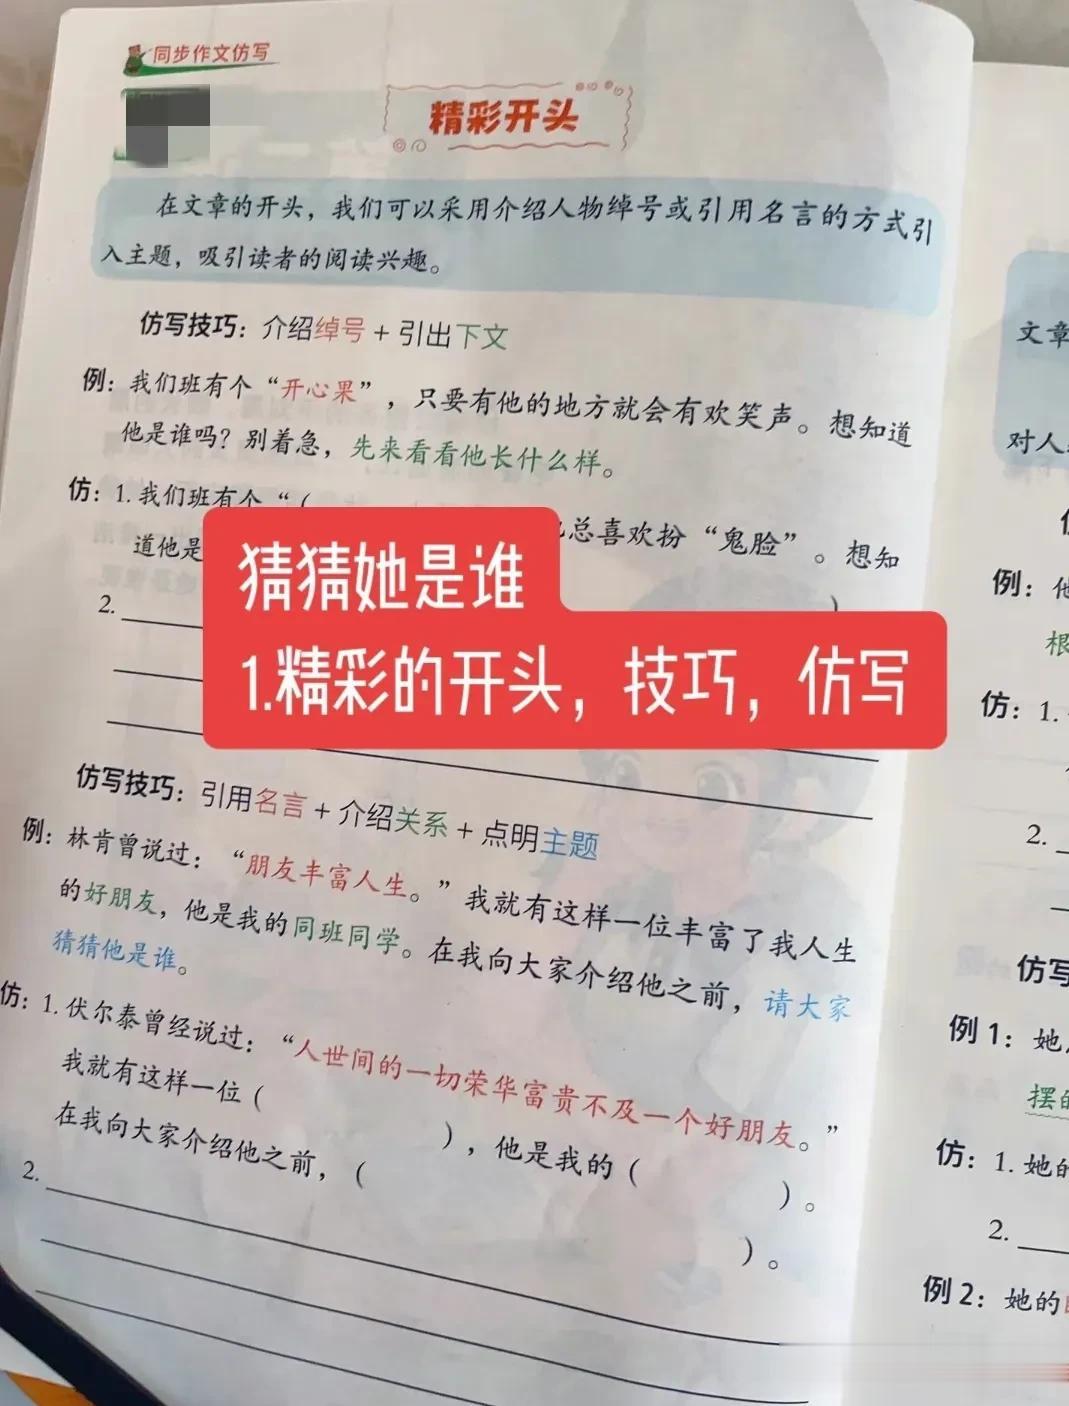 同步作文仿写
精彩开头
在文章的开头，我们可以采用介绍人物绰号或引用名言的方式引
入主题，吸引读者的阅读兴趣。
仿写技巧：介绍绰号 + 引出下文
例：我们班有个“开心果”，只要有他的地方就会有欢笑声。想知道
他是谁吗？别着急，先来看看他长什么样。
仿：1. 我们班有个“（
总喜欢扮“鬼脸”。想知
道他是
）
2.
猜猜她是谁
1.精彩的开头，技巧，仿写
仿写技巧：引用名言 + 介绍关系 + 点明主题
例：林肯曾说过：“朋友丰富人生。”我就有这样一位丰富了我人生
的好朋友，他是我的同班同学。在我向大家介绍他之前，请大家
猜猜他是谁。
仿：1. 伏尔泰曾经说过：“人世间的一切荣华富贵不及一个好朋友。”
我就有这样一位（ ），他是我的（ ）。
在我向大家介绍他之前，（ ）。
2.
文章
对人
例：他
根
仿：1.
2.
仿写
例 1：她
摆的
仿：1. 她的
2.
例 2：她的